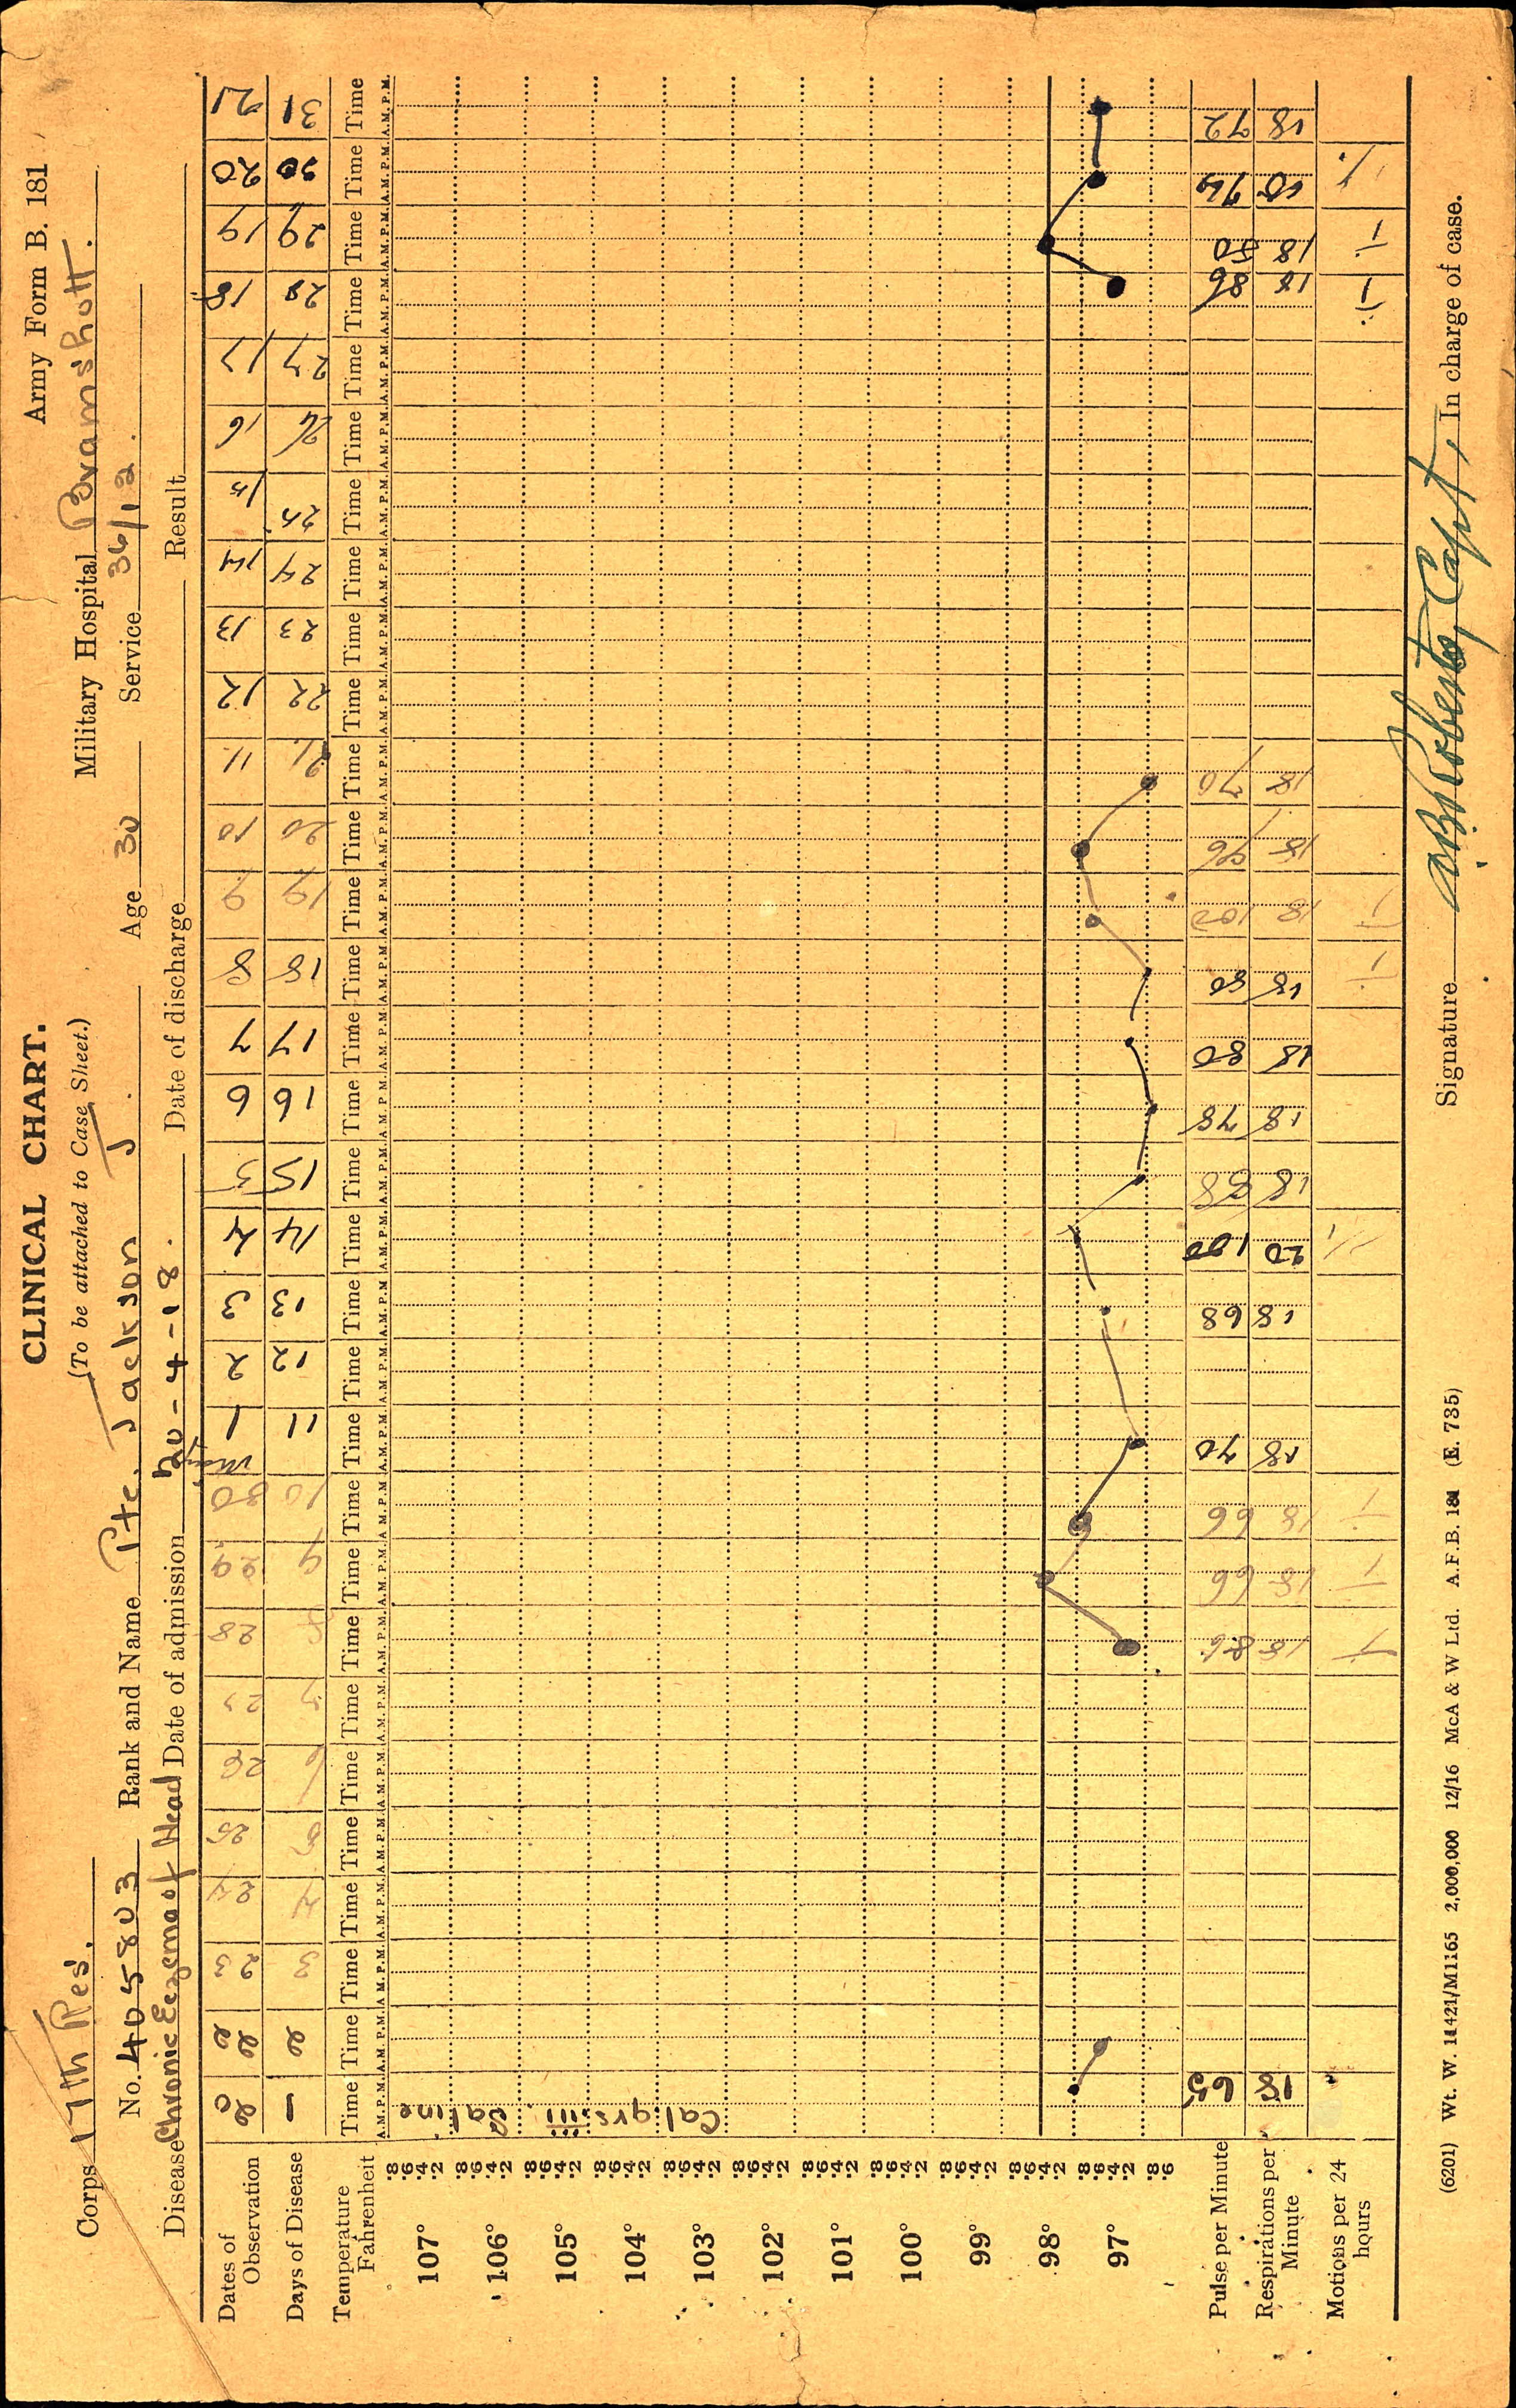 CLINICAL CHART.
Army Form B. 181
(To be attached to Case Sheet.)
Corps 17th Res. Military Hospital Bramshott.
No. 405803 Rank and Name Pte. Jackson J. Age 30 Service 36/12.
Disease Chronic Eczema of Head Date of admission 20-4-18. Date of discharge Result
Dates of Observation 20 22 23 24 25 26 27 28 29 30 May 1 2 3 4 5 6 7 8 9 10 11 12 13 14 15 16 17 18 19 20 21
Days of Disease 1 2 3 4 5 6 7 8 9 10 11 12 13 14 15 16 17 18 19 20 21 22 23 24 25 26 27 28 29 30 31
Temperature Fahrenheit Time Time Time Time Time Time Time Time Time Time Time Time Time Time Time Time Time Time Time Time Time Time Time Time Time Time Time Time Time Time Time
A.M. P.M. A.M. P.M. A.M. P.M. A.M. P.M. A.M. P.M. A.M. P.M. A.M. P.M. A.M. P.M. A.M. P.M. A.M. P.M. A.M. P.M. A.M. P.M. A.M. P.M. A.M. P.M. A.M. P.M. A.M. P.M. A.M. P.M. A.M. P.M. A.M. P.M. A.M. P.M. A.M. P.M. A.M. P.M. A.M. P.M. A.M. P.M. A.M. P.M. A.M. P.M. A.M. P.M. A.M. P.M. A.M. P.M. A.M. P.M. A.M. P.M.
107° .8 .6 .4 .2
106° .8 .6 .4 .2
105° .8 .6 .4 .2
104° .8 .6 .4 .2
103° .8 .6 .4 .2
102° .8 .6 .4 .2
101° .8 .6 .4 .2
100° .8 .6 .4 .2
99° .8 .6 .4 .2
98° .8 .6 .4 .2
97° .8 .6 .4 .2
.8 .6
Cal. grs. iii. Saline
Pulse per Minute 65 86 66 66 70 68 100 88 78 80 80 102 96 70 86 80 74 72
Respirations per Minute 18 18 18 18 18 18 20 18 18 18 18 18 18 18 18 18 18
Motions per 24 hours
Signature Roberts, Capt, In charge of case.
(6201) Wt. W. 11421/M1165 2,000,000 12/16 McA & W Ltd. A.F.B. 181 (E. 735)